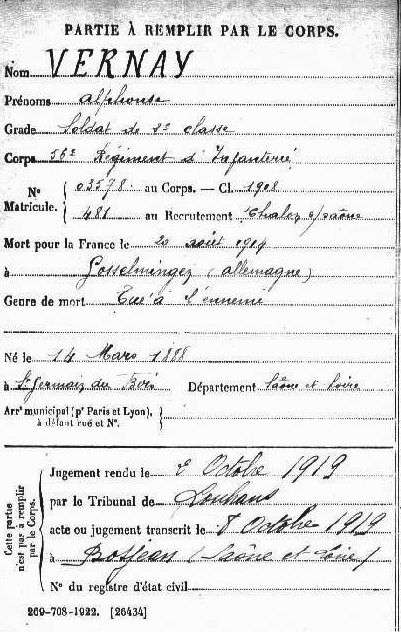 PARTIE À REMPLIR PAR LE CORPS.
Nom VERNAY
Prénoms Alphonse
Grade Soldat de 2e classe
Corps 56e Régiment d'Infanterie
N° Matricule. { 03578 au Corps. — Cl. 1908
481 au Recrutement Chalon s/saône
Mort pour la France le 20 août 1914
à Gosselmingen (allemagne)
Genre de mort Tué à l'ennemi
Né le 14 Mars 1888
à St Germain du Bois Département Saône et Loire
Arrt municipal (pr Paris et Lyon),
à défaut rue et N°.
Cette partie n'est pas à remplir par le Corps.
Jugement rendu le Octobre 1919
par le Tribunal de Louhans
acte ou jugement transcrit le 8 Octobre 1919
à Bosjean (Saône et Loire)
N° du registre d'état civil
269-708-1922. [26434]